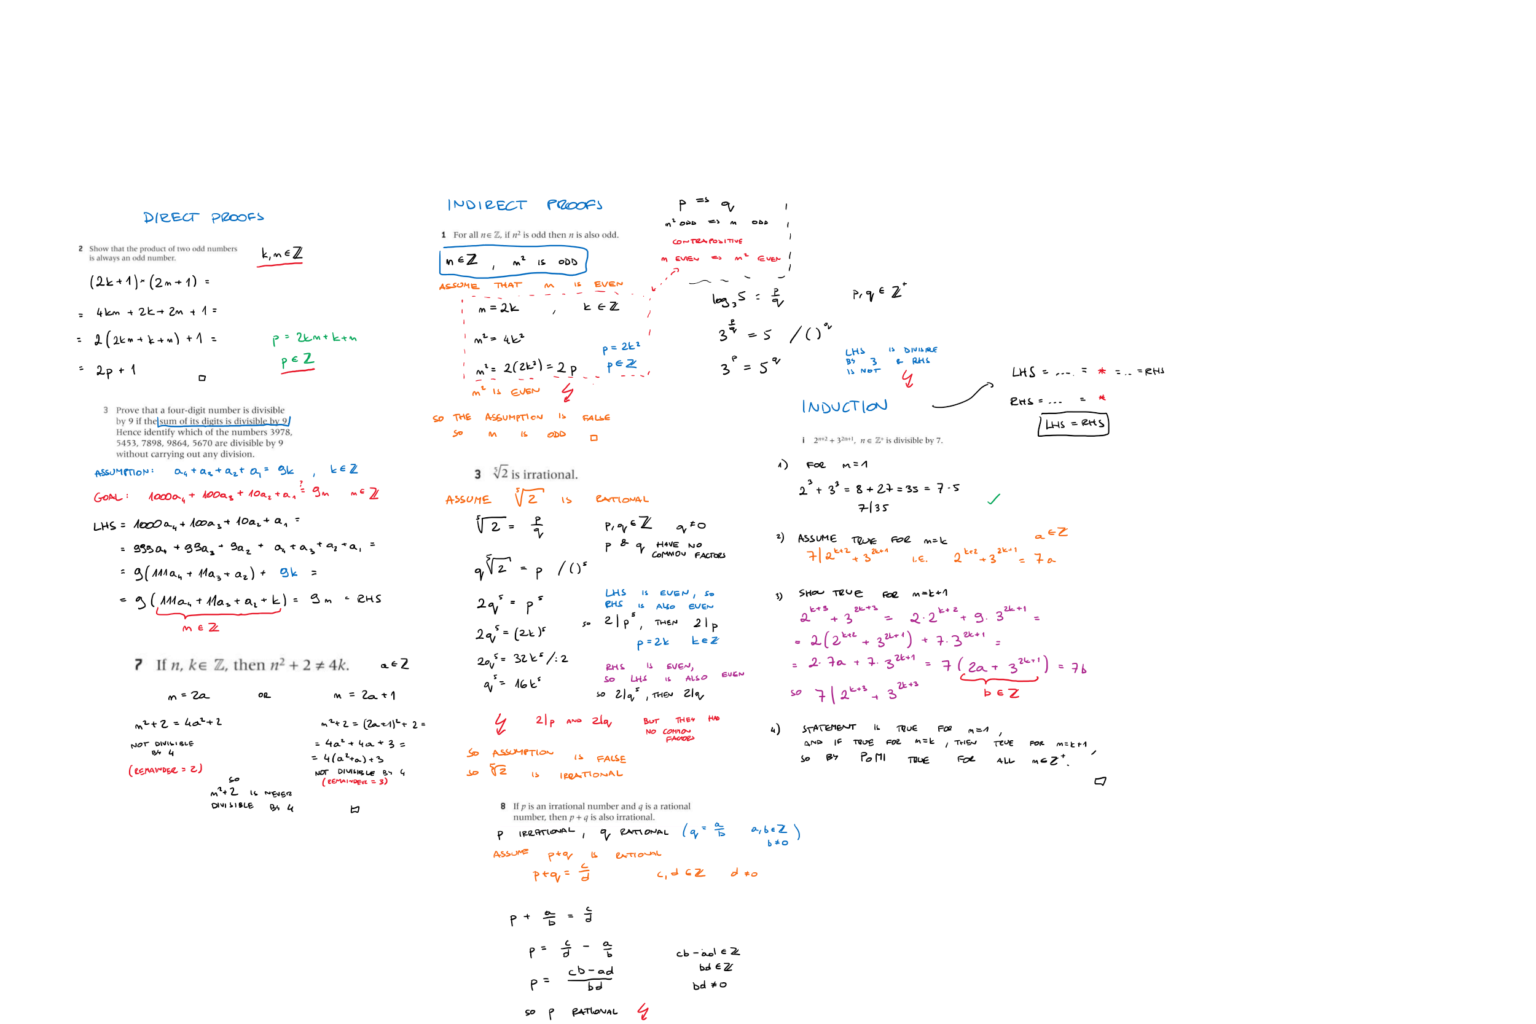 DIRECT PROOFS
2 Show that the product of two odd numbers
is always an odd number.
k, n ∈ ℤ
(2k+1)·(2n+1) =
= 4kn + 2k + 2n + 1 =
= 2(2kn + k + n) + 1 =
p = 2kn + k + n
p ∈ ℤ
= 2p + 1
□
3 Prove that a four-digit number is divisible
by 9 if the sum of its digits is divisible by 9.
Hence identify which of the numbers 3978,
5453, 7898, 9864, 5670 are divisible by 9
without carrying out any division.
ASSUMPTION: a₄ + a₃ + a₂ + a₁ = 9k , k ∈ ℤ
GOAL: 1000a₄ + 100a₃ + 10a₂ + a₁ ≟ 9m m ∈ ℤ
LHS = 1000a₄ + 100a₃ + 10a₂ + a₁ =
= 999a₄ + 99a₃ + 9a₂ + a₄ + a₃ + a₂ + a₁ =
= 9(111a₄ + 11a₃ + a₂) + 9k =
= 9(111a₄ + 11a₃ + a₂ + k) = 9m = RHS
m ∈ ℤ
7 If n, k ∈ ℤ, then n² + 2 ≠ 4k.
a ∈ ℤ
n = 2a OR n = 2a + 1
n² + 2 = 4a² + 2
NOT DIVISIBLE
BY 4
(REMAINDER = 2)
n² + 2 = (2a+1)² + 2 =
= 4a² + 4a + 3 =
= 4(a² + a) + 3
NOT DIVISIBLE BY 4
(REMAINDER = 3)
SO
n² + 2 IS NEVER
DIVISIBLE BY 4
□
INDIRECT PROOFS
1 For all n ∈ ℤ, if n² is odd then n is also odd.
n ∈ ℤ , n² IS ODD
ASSUME THAT n IS EVEN
n = 2k , k ∈ ℤ
n² = 4k²
n² = 2(2k²) = 2p
p = 2k²
p ∈ ℤ
n² IS EVEN
SO THE ASSUMPTION IS FALSE
SO n IS ODD □
p ⇒ q
n² ODD ⇒ n ODD
CONTRAPOSITIVE
n EVEN ⇒ n² EVEN
log₃5 = p/q
p, q ∈ ℤ⁺
3^(p/q) = 5 / ( )^q
3^p = 5^q
LHS IS DIVISIBLE
BY 3 & RHS
IS NOT
3 ⁵√2 is irrational.
ASSUME ⁵√2 IS RATIONAL
⁵√2 = p/q
p, q ∈ ℤ q ≠ 0
p & q HAVE NO
COMMON FACTORS
q ⁵√2 = p / ( )⁵
2q⁵ = p⁵
LHS IS EVEN, SO
RHS IS ALSO EVEN
SO 2|p⁵, THEN 2|p
p = 2k k ∈ ℤ
2q⁵ = (2k)⁵
2q⁵ = 32k⁵ /:2
q⁵ = 16k⁵
RHS IS EVEN,
SO LHS IS ALSO EVEN
SO 2|q⁵, THEN 2|q
2|p AND 2|q BUT THEY HAD
NO COMMON
FACTORS
SO ASSUMPTION IS FALSE
SO ⁵√2 IS IRRATIONAL
8 If p is an irrational number and q is a rational
number, then p + q is also irrational.
p IRRATIONAL, q RATIONAL (q = a/b a, b ∈ ℤ
b ≠ 0)
ASSUME p+q IS RATIONAL
p+q = c/d c, d ∈ ℤ d ≠ 0
p + a/b = c/d
p = c/d - a/b
p = (cb - ad)/bd
cb - ad ∈ ℤ
bd ∈ ℤ
bd ≠ 0
SO p RATIONAL
INDUCTION
LHS = ..... = * = ... = RHS
RHS = ... = *
LHS = RHS
1 2ⁿ⁺² + 3²ⁿ⁺¹, n ∈ ℤ⁺ is divisible by 7.
1) FOR n = 1
2³ + 3³ = 8 + 27 = 35 = 7·5
7|35 ✓
2) ASSUME TRUE FOR n=k
a ∈ ℤ
7|2^(k+2) + 3^(2k+1) I.E. 2^(k+2) + 3^(2k+1) = 7a
3) SHOW TRUE FOR n=k+1
2^(k+3) + 3^(2k+3) = 2·2^(k+2) + 9·3^(2k+1) =
= 2(2^(k+2) + 3^(2k+1)) + 7·3^(2k+1) =
= 2·7a + 7·3^(2k+1) = 7(2a + 3^(2k+1)) = 7b
b ∈ ℤ
SO 7|2^(k+3) + 3^(2k+3)
4) STATEMENT IS TRUE FOR n=1,
AND IF TRUE FOR n=k, THEN TRUE FOR n=k+1,
SO BY PoMI TRUE FOR ALL n ∈ ℤ⁺.
□